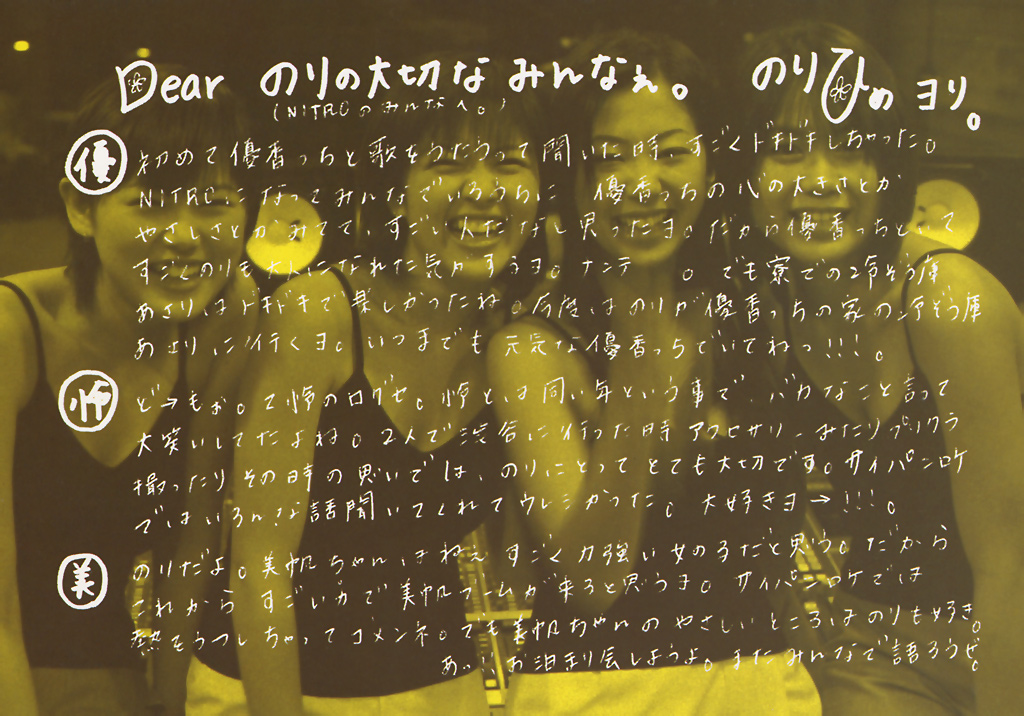 Dear のりの大切な みんなぇ。 のりひめ ヨリ。
(NITROのみんなへ。)
優 初めて優香っちと歌をうたうって聞いた時すごくドキドキしちゃった。
NITROになってみんなでいろうちに 優香っちの心の大きさとか
やさしさとかみてて、すごい人だなし思ったヨ。だから優香っちといて
すごくのりも大人になれた気がするヨ。ナンテ 。でも寮での冷ぞう庫
あさりはドキドキで楽しかったね。今度はのりが優香っちの家の冷ぞう庫
あさりに行くヨ。いつまでも元気な優香っちでいてねっ!!!。
怜 ど→もぉ。って怜のログセ。怜とは同い年という事で、バカなこと言って
大笑いしてたよね。2人で渋谷に行った時アクセサリーみたりプリクラ
撮ったりその時の思いでは、のりにとってとても大切です。サイパンロケ
ではいろんな話聞いてくれてウレシかった。大好きヨ→!!!。
美 のりだよ。美帆ちゃんはねぇすごく力強い女の子だと思う。だから
これからすごい力で美帆ブームが来ると思うヨ。サイパンロケでは
熱をうつしちゃってゴメンネ。でも美帆ちゃんのやさしいところはのりも好き。
あっ、お泊まり会しようよ。またみんなで語ろうゼ。